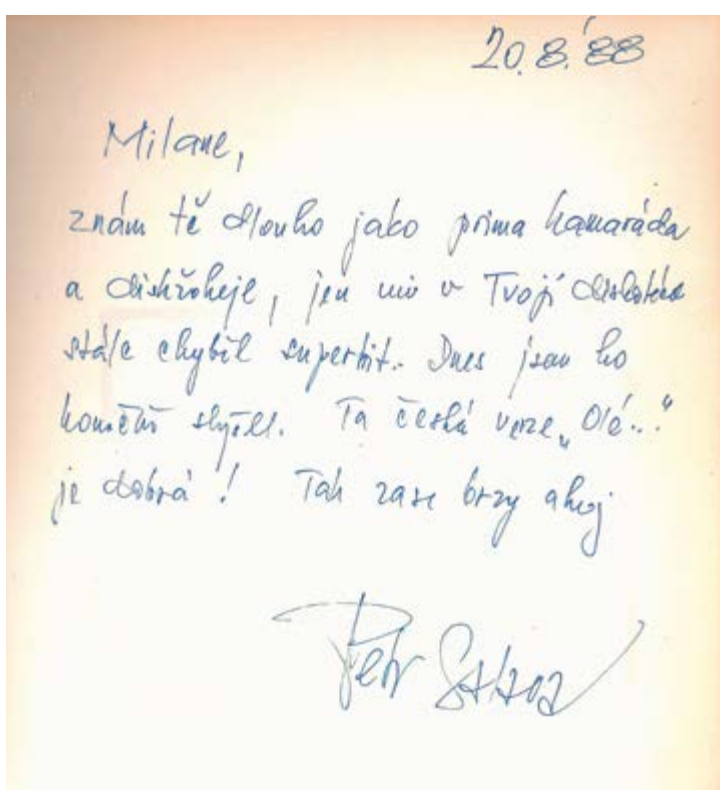 20.8.'88
Milane,
znám tě dlouho jako prima kamaráda
a diskžokeje, jen mi v Tvojí diskotéce
stále chyběl superhit. Dnes jsem ho
konečně slyšel. Ta česká verze „Olé..."
je dobrá! Tak zase brzy ahoj
Petr